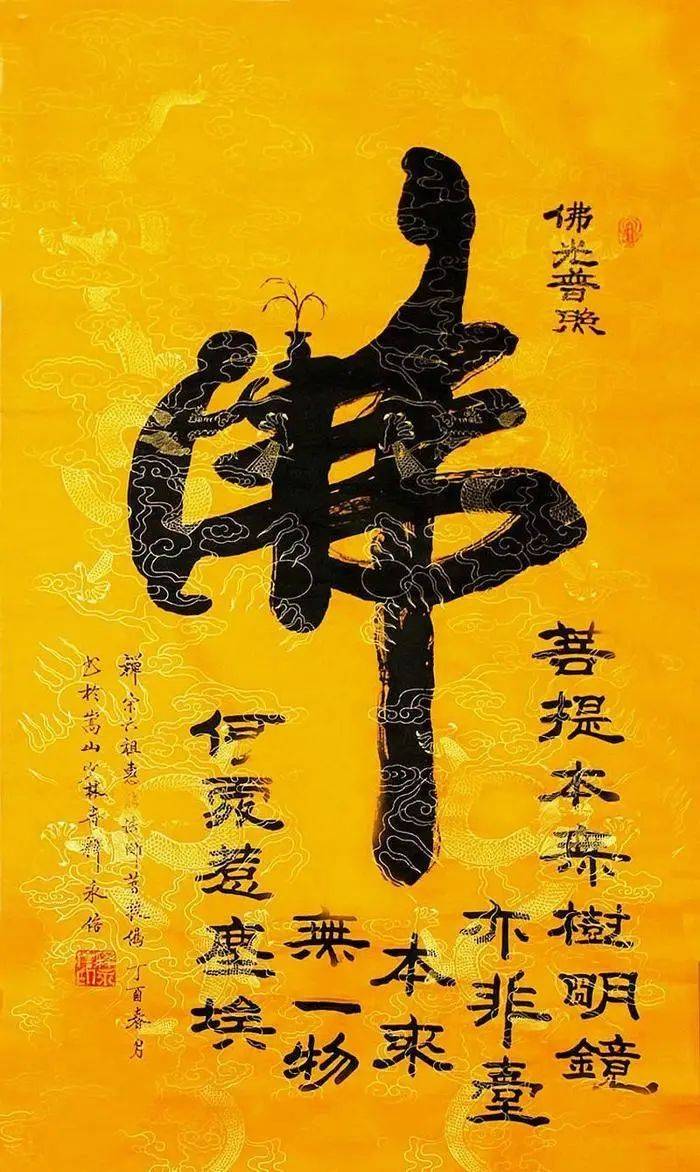 佛光普照
佛
菩提本無樹明鏡
亦非臺
本來
無一物
何處惹塵埃
禪宗六祖惠能法師菩提偈 丁酉春月
書於嵩山少林寺釋永